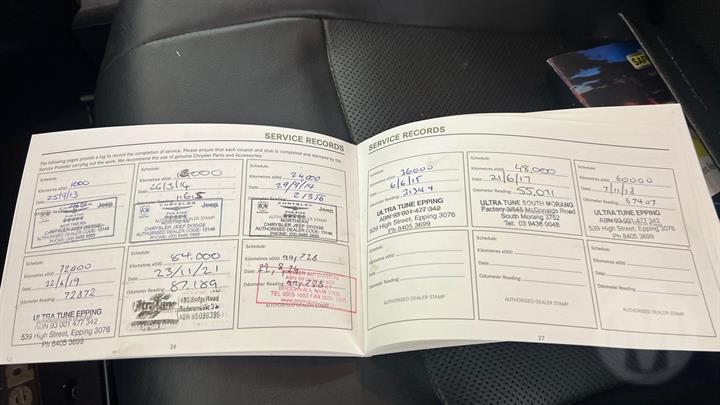 SERVICE RECORDS
The following pages provide a log to record the completion of service. Please ensure that each coupon and stub is completed and stamped by the
Service Provider carrying out the work. We recommend the use of genuine Chrysler Parts and Accessories.
Schedule:
Kilometres x000 1000
Date: 25/9/13
CHRYSLER Jeep
NORTHERN
CHRYSLER JEEP DODGE
Schedule:
Kilometres x000
Date: 26/3/14
Odometer Reading:
CHRYSLER Jeep
DEALER STAMP
NORTHERN
CHRYSLER JEEP DODGE
AUTHORISED DEALER CODE: 13146
Schedule:
Kilometres x000 24,000
Date: 29/9/14
Odometer Reading: 21356
CHRYSLER Jeep
NORTHERN
CHRYSLER JEEP DODGE
AUTHORISED DEALER CODE: 13146
Schedule:
Kilometres x000 72000
Date: 22/6/19
Odometer Reading: 72872
ULTRA TUNE EPPING
ABN 93 001 477 342
539 High Street, Epping 3076
Ph 8405 3699
Schedule:
Kilometres x000 84,000
Date: 23/11/21
Odometer Reading: 87189
UltraTune
Schedule:
Kilometres x000 99,728
Date:
Odometer Reading: 99,728
AUTHORISED DEALER STAMP
26
SERVICE RECORDS
Schedule:
Kilometres x000 36000
Date: 6/6/15
Odometer Reading:
ULTRA TUNE EPPING
ABN 93 001 477 342
539 High Street, Epping 3076
Ph 8405 3699
Schedule:
Kilometres x000 48,000
Date: 21/6/17
Odometer Reading: 55,071
ULTRA TUNE SOUTH MORANG
Factory 3/545 McDonalds Road
South Morang 3752
Tel: 03 9436 0048
Schedule:
Kilometres x000 60000
Date: 7/11/18
Odometer Reading: 67407
ULTRA TUNE EPPING
ABN 93 001 477 342
539 High Street, Epping 3076
Ph 8405 3699
Schedule:
Kilometres x000
Date:
Odometer Reading:
AUTHORISED DEALER STAMP
Schedule:
Kilometres x000
Date:
Odometer Reading:
AUTHORISED DEALER STAMP
Schedule:
Kilometres x000
Date:
Odometer Reading:
AUTHORISED DEALER STAMP
27